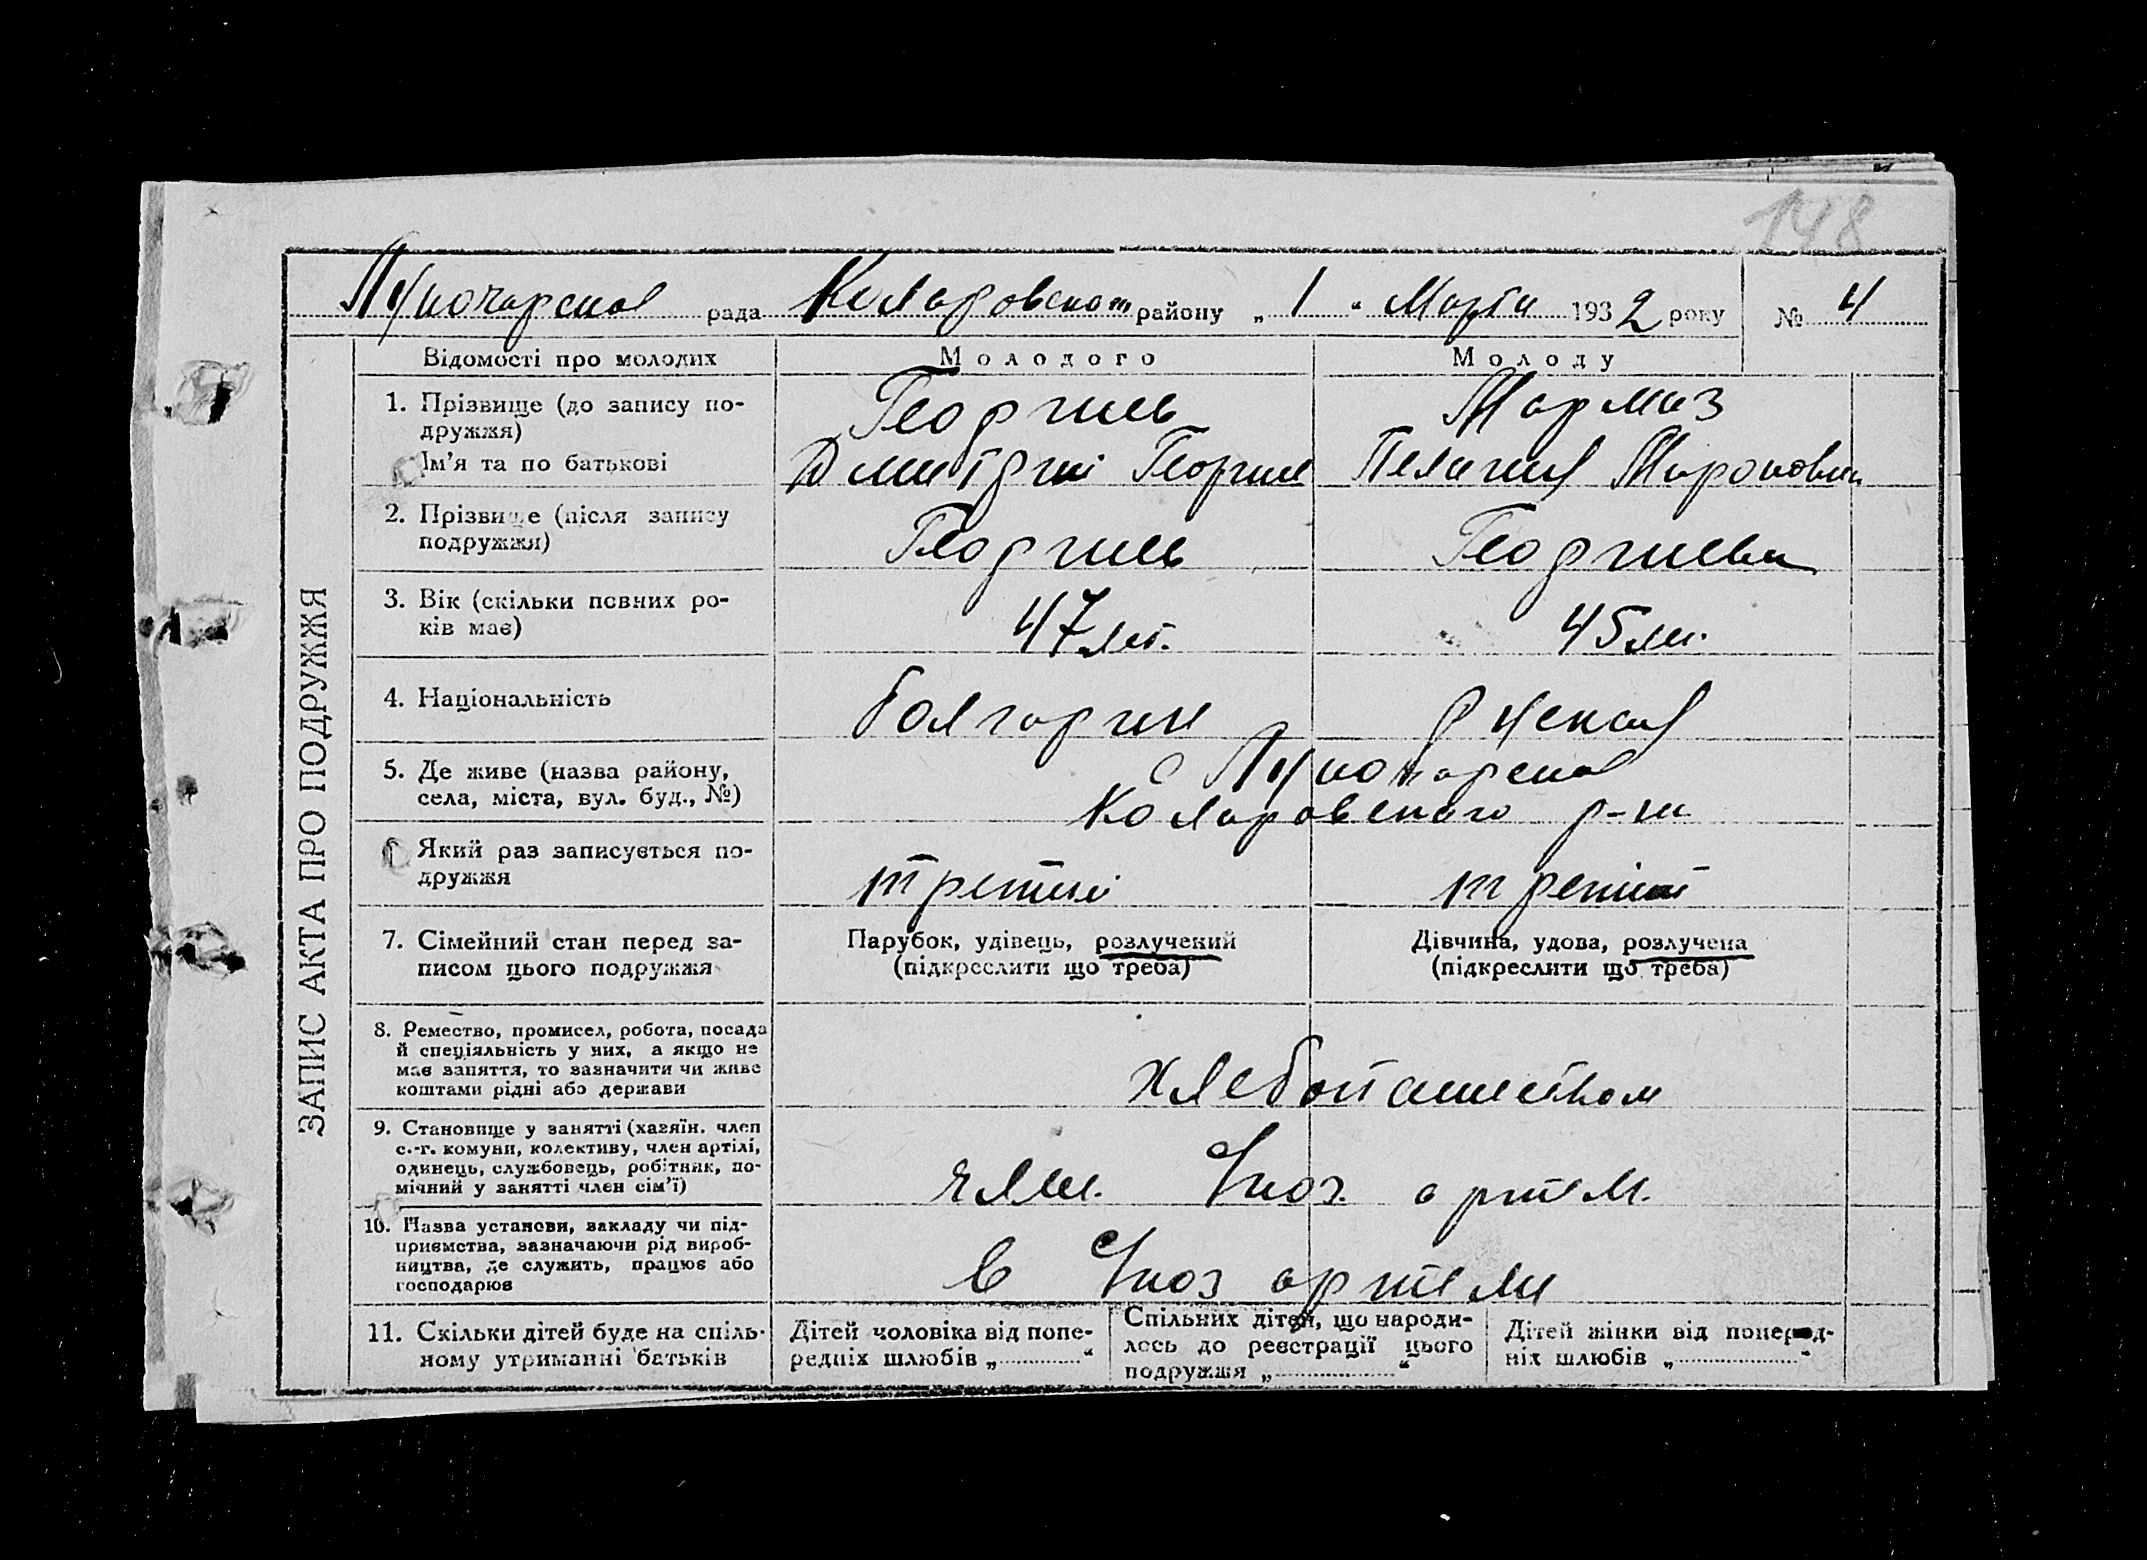 148
Луночарская рада Коларовского району „1“ Марта 1932 року № 4
ЗАПИС АКТА ПРО ПОДРУЖЖЯ
Відомості про молодих Молодого Молоду
1. Прізвище (до запису по-
дружжя)
Георгиев
Ім’я та по батькові Дмитрий Георгие Пелагия Мироновна
2. Прізвище (після запису
подружжя)
Георгиев Георгиева
3. Вік (скільки повних ро-
ків має)
47 лет. 45 ле.
4. Національність болгарин руская
5. Де живе (назва району,
села, міста, вул. буд., №)
с Луночарска
Коларовского р-на
6 Який раз записується по-
дружжя
третий третий
7. Сімейний стан перед за-
писом цього подружжя
Парубок, удівець, розлучений
(підкреслити що треба)
Дівчина, удова, розлучена
(підкреслити що треба)
8. Ремество, промисел, робота, посада
й спеціяльність у них, а якщо не
має заняття, то зазначити чи живе
коштами рідні або держави
хлебопашеством
9. Становище у занятті (хазяїн, член
с.-г. комуни, колективу, член артілі,
одинець, службовець, робітник, по-
мічний у занятті член сім’ї)
член. артел.
10. Назва установи, закладу чи під-
приємства, зазначаючи рід вироб-
ництва, де служить, працює або
господарює
в артели
11. Скільки дітей буде на спіль-
ному утриманні батьків
Дітей чоловіка від попе-
редніх шлюбів „............“
Спільних дітей, що народи-
лось до реєстрації цього
подружжя „............“
Дітей жінки від поперед-
ніх шлюбів „............“